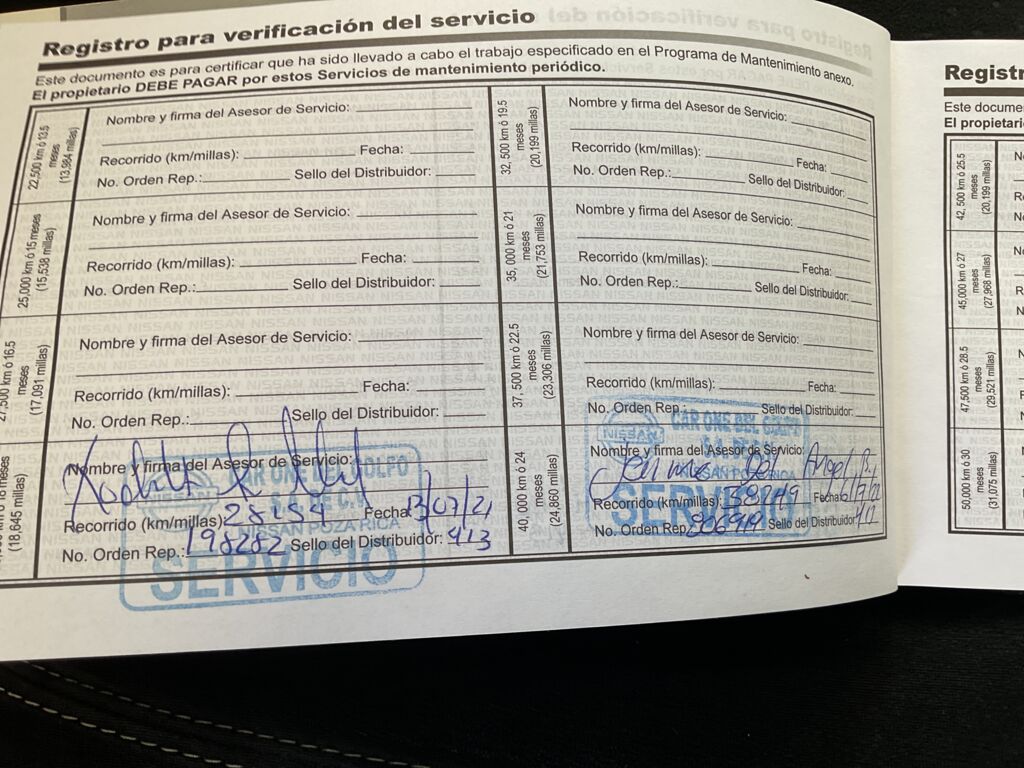 Registro para verificación del servicio
Este documento es para certificar que ha sido llevado a cabo el trabajo especificado en el Programa de Mantenimiento anexo.
El propietario DEBE PAGAR por estos Servicios de mantenimiento periódico.
22,500 km ó 13.5
meses
(13,984 millas)
Nombre y firma del Asesor de Servicio:
Recorrido (km/millas): Fecha:
No. Orden Rep.: Sello del Distribuidor:
25,000 km ó 15 meses
(15,538 millas)
Nombre y firma del Asesor de Servicio:
Recorrido (km/millas): Fecha:
No. Orden Rep.: Sello del Distribuidor:
27,500 km ó 16.5
meses
(17,091 millas)
Nombre y firma del Asesor de Servicio:
Recorrido (km/millas): Fecha:
No. Orden Rep.: Sello del Distribuidor:
meses
(18,645 millas)
Nombre y firma del Asesor de Servicio:
Recorrido (km/millas): 28184 Fecha: 13/07/21
No. Orden Rep.: 198282 Sello del Distribuidor: 413
CAR ONE DEL GOLFO
S.A. DE C.V.
NISSAN POZA RICA
SERVICIO
32, 500 km ó 19.5
meses
(20,199 millas)
Nombre y firma del Asesor de Servicio:
Recorrido (km/millas): Fecha:
No. Orden Rep.: Sello del Distribuidor:
35,000 km ó 21
meses
(21,753 millas)
Nombre y firma del Asesor de Servicio:
Recorrido (km/millas): Fecha:
No. Orden Rep.: Sello del Distribuidor:
37, 500 km ó 22.5
meses
(23,306 millas)
Nombre y firma del Asesor de Servicio:
Recorrido (km/millas): Fecha:
No. Orden Rep.: Sello del Distribuidor:
40, 000 km ó 24
meses
(24,860 millas)
Nombre y firma del Asesor de Servicio:
Recorrido (km/millas): 38249 Fecha:
No. Orden Rep. 206919 Sello del Distribuidor: 412
NISSAN
CAR ONE DEL GOLFO
NISSAN POZA RICA
SERVICIO
Registr
Este docume
El propietari
42, 500 km ó 25.5
meses
(20,199 millas)
45,000 km ó 27
meses
(27,968 millas)
47,500 km ó 28.5
meses
(29,521 millas)
50,000 km ó 30
meses
(31,075 millas)